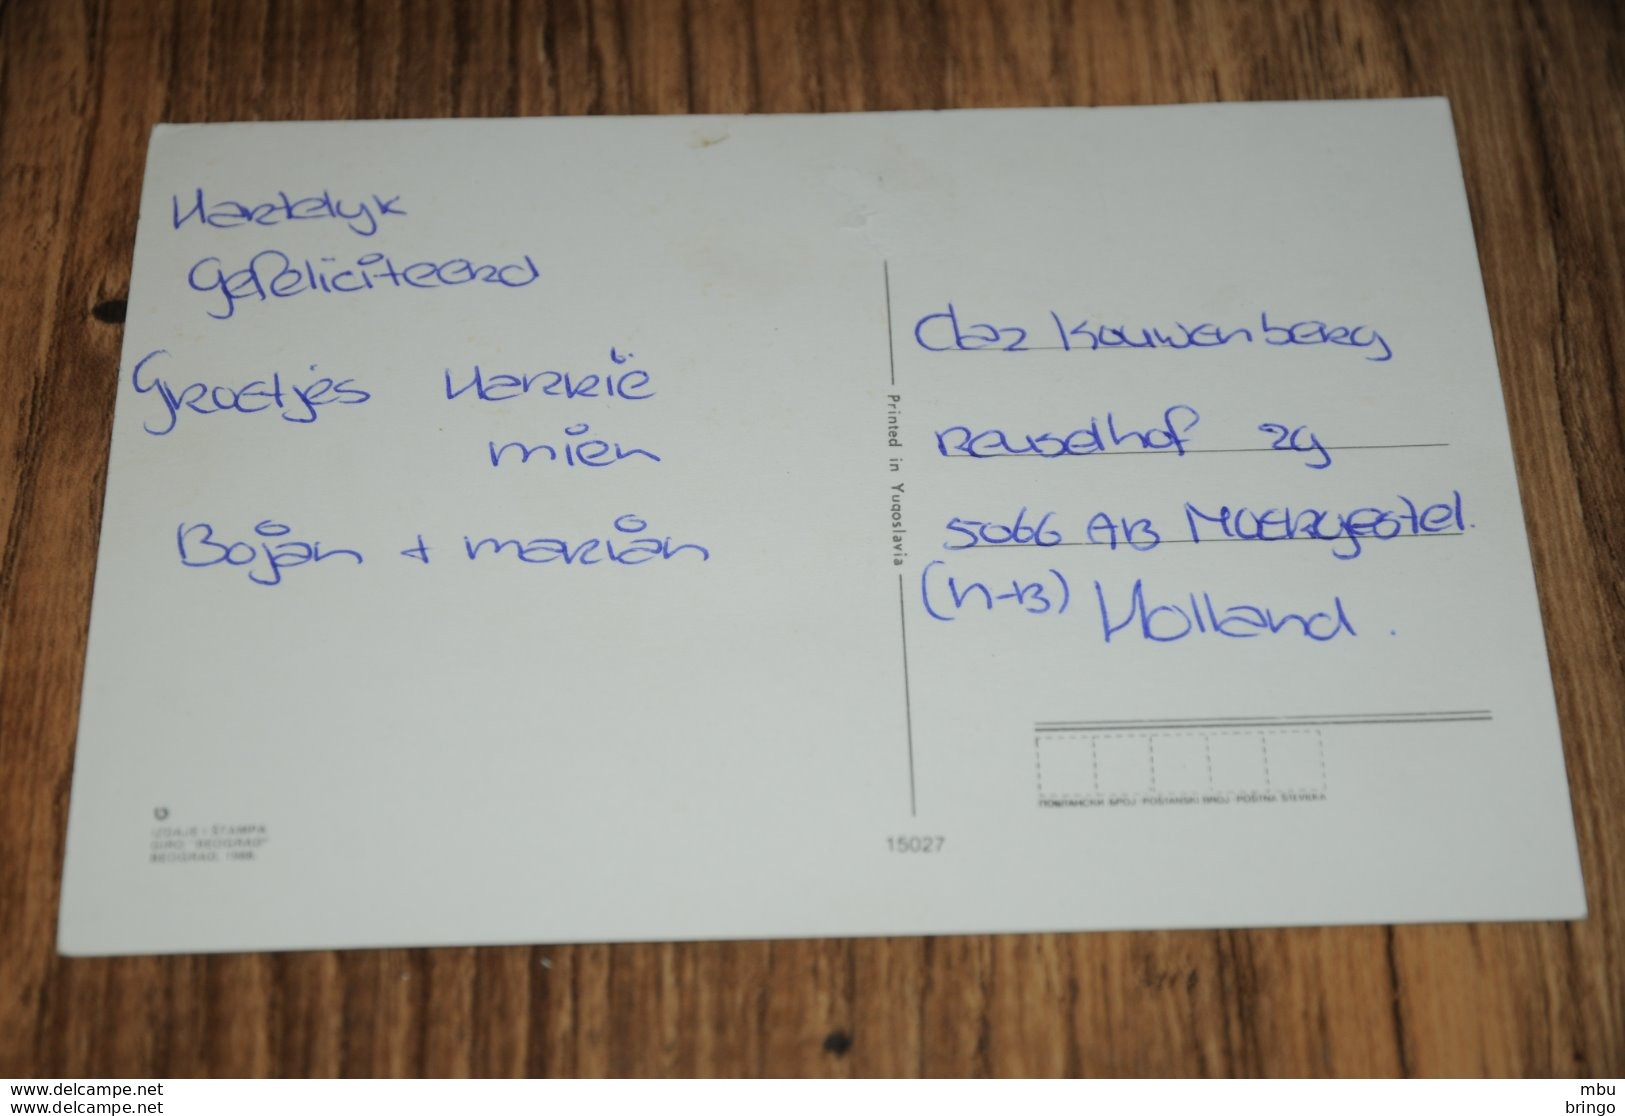 Hartelyk
Gefeliciteerd
Groetjes Harrië
mien
Bojan + marian
Printed in Yugoslavia
Kouwenberg
Reuselhof 29
5066 AB Moergestel.
(N-B) Holland.
ПОШТАНСКИ БРОЈ POŠTANSKI BROJ POŠTNA ŠTEVILKA
IZDAJE I ŠTAMPA
"BEOGRAD"
BEOGRAD, 1988.
15027
delcampe.net
delcampe.net
mbu
bringo